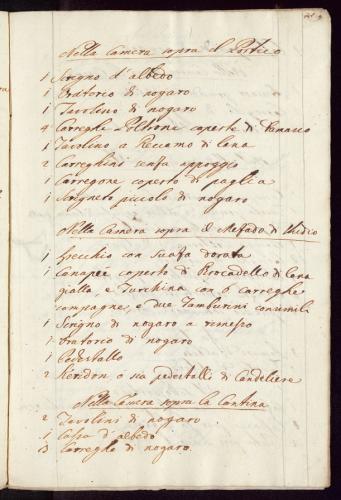 Nella Camera sopra il Portico
1 Scrigno d'albedo
1 Oratorio di nogaro
1 Tavolino di nogaro
4 Careghe Poltrone coperte di Damasco
1 Tavolino a Reccamo di lana
2 Careghini senza appoggio
1 Caregone coperto di paglia
1 Scrigneto piccolo di nogaro
Nella Camera sopra il Mesado di Studio
1 Specchio con Suaza dorata
1 Canapee coperto di Brocadello di lana
gialla, e Turchina con 6 careghe
compagne, e due Tamburini consimili
1 Scrigno di nogaro a rimesso
1 Oratorio di nogaro
1 Pedestallo
2 Keridon o sia pedestalli di Candeliere
Nella Camera sopra la Cantina
2 Tavolini di nogaro
1 Cassa d'albedo
3 Careghe di nogaro